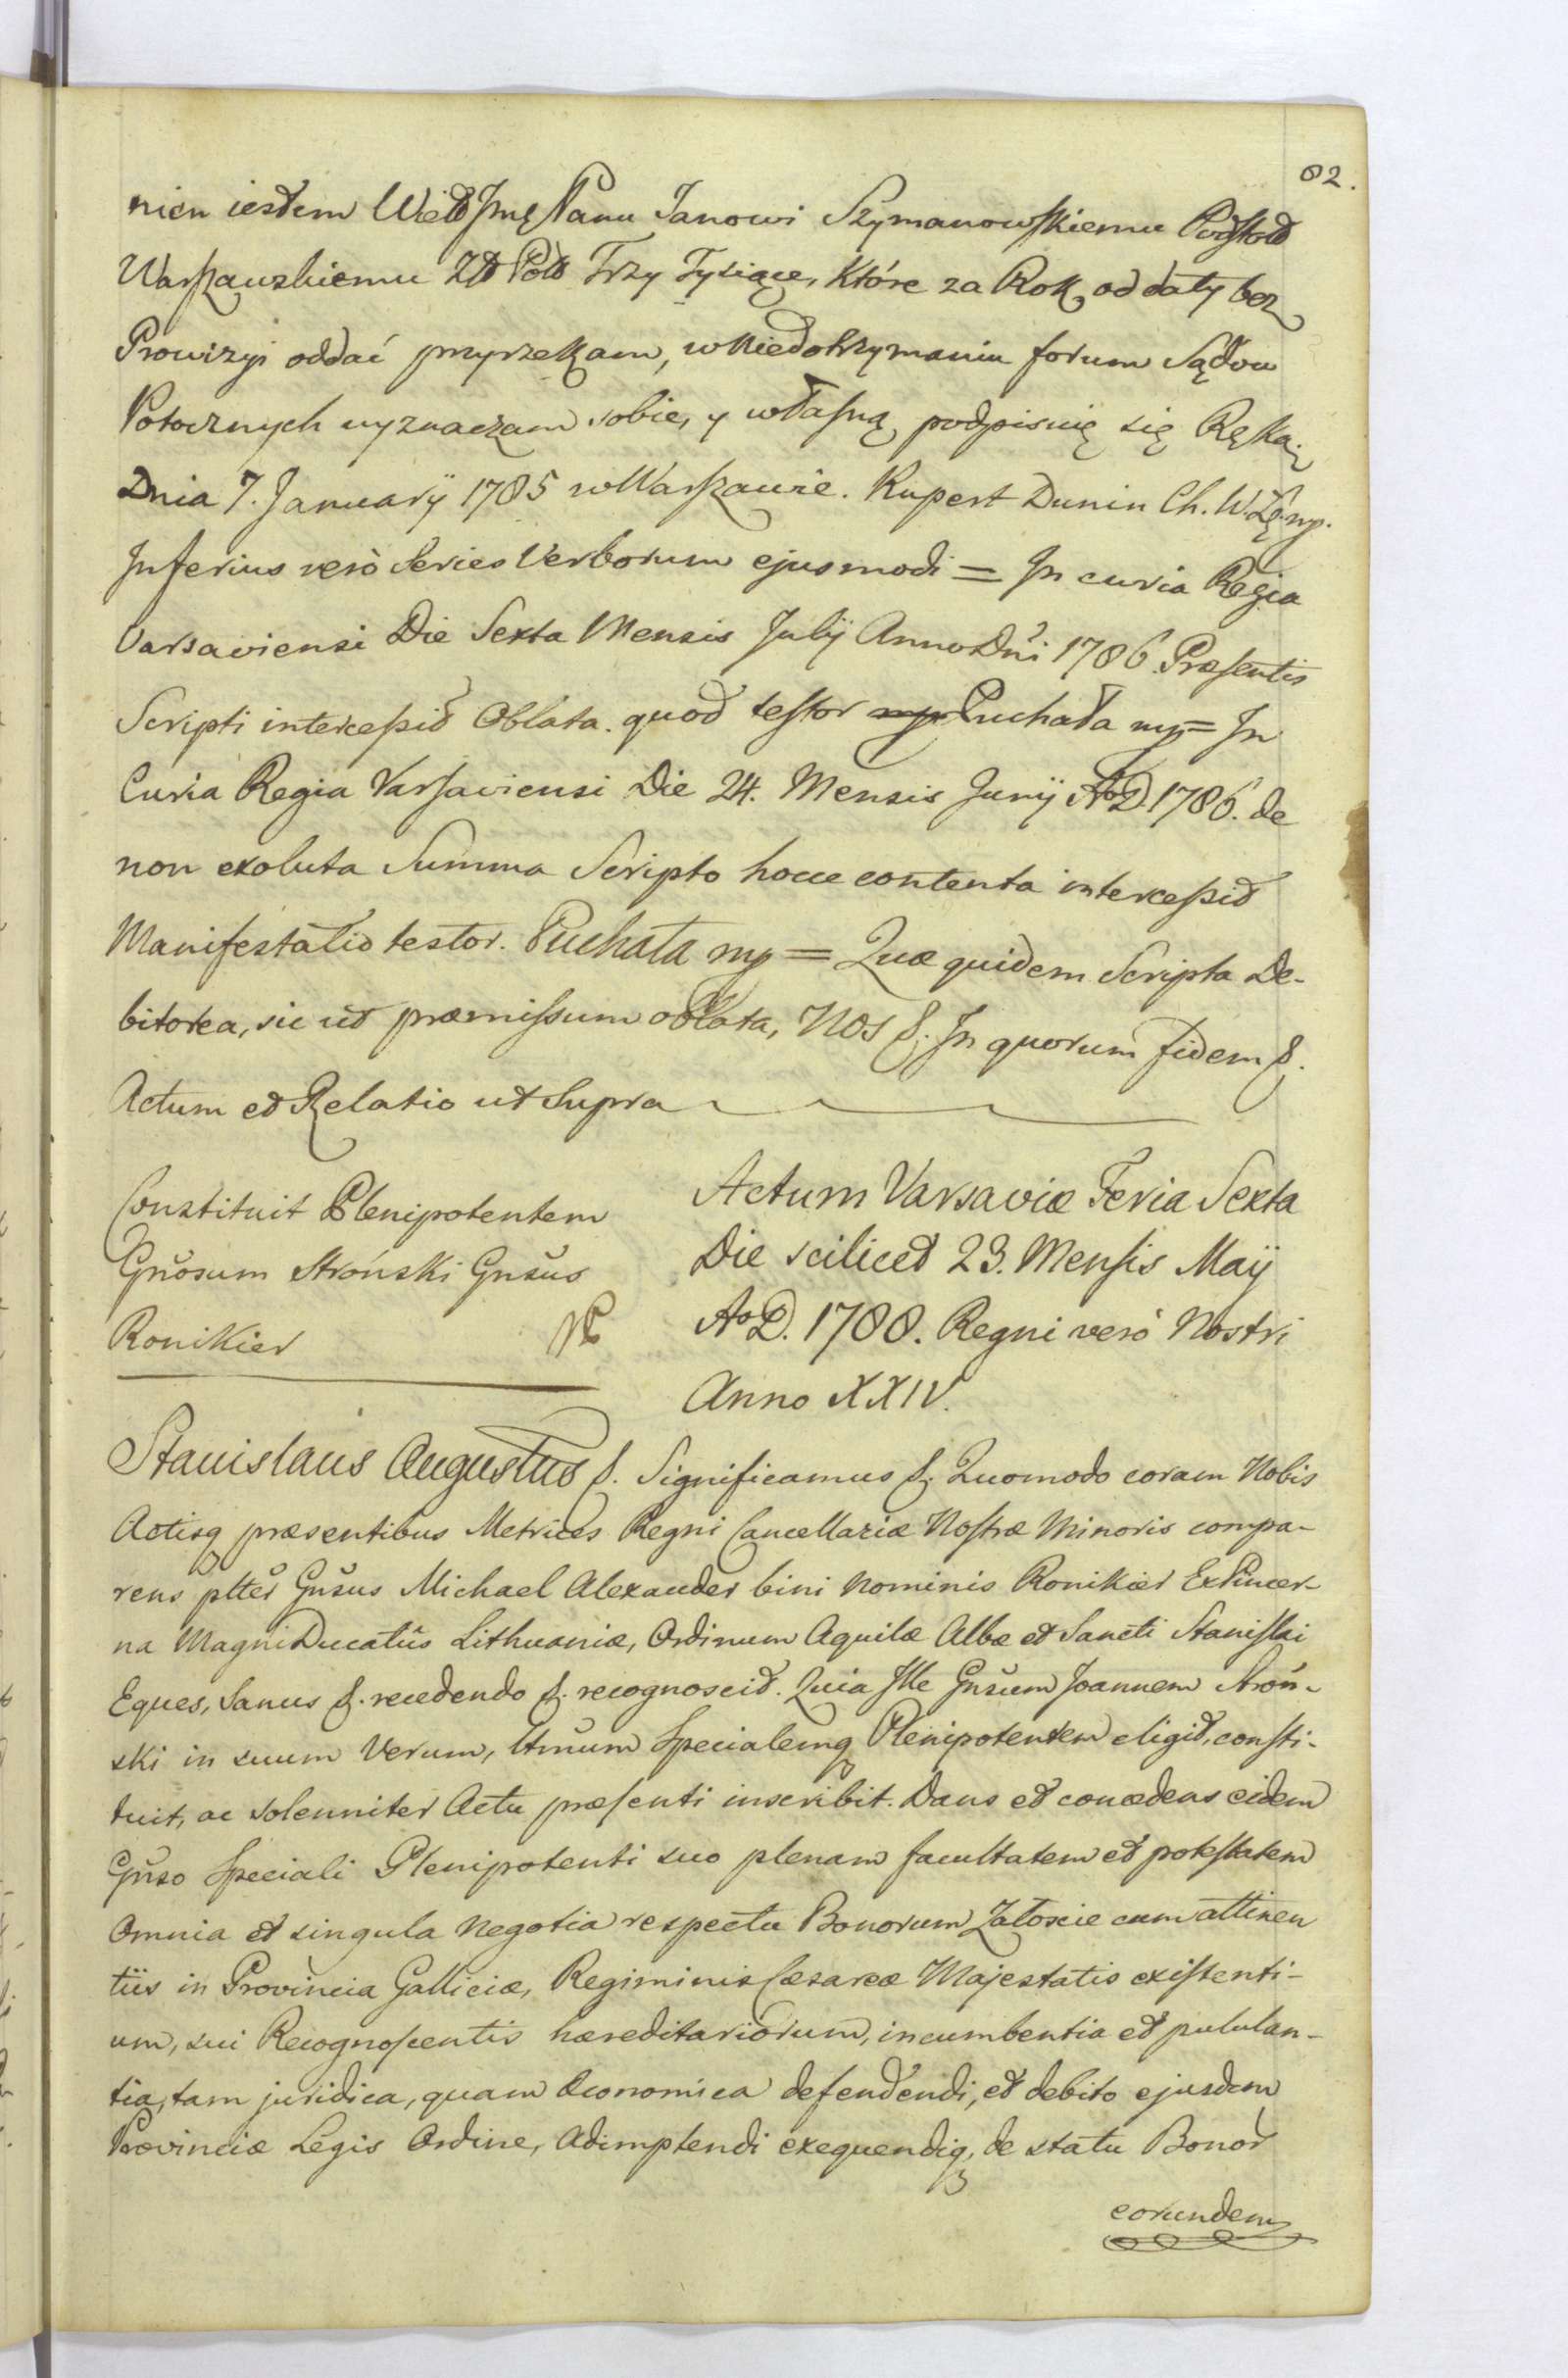 82.
nien iestem Wiel Jmę Panu Janowi Szymanowskiemu Podstol
Warszawskiemu Zł Pol Trzy Tysiące, Które za Rok od daty bez
Prowizyi oddać przyrzekam, w Niedotrzymaniu forum Sądow
Potocznych wyznaczam sobie, y własną podpisuię się Ręką.
Dnia 7. Januarÿ 1785 w Warszawie. Rupert Dunin Ch. W. Łę. mp.
Inferius verò Series Verborum ejusmodi = In curia Regia
Varsaviensi Die Sexta Mensis Julÿ Anno Dni 1786 Præsentis
Scripti intercessit Oblata. quod testor Puchała mp = In
Curia Regia Varsaviensi Die 24. Mensis Junÿ Ao D. 1786. de
non exoluta Summa Scripto hocce contenta intercessit
Manifestatio testor. Puchała mp = Quæ quidem Scripta De-
bitorea, sic ut præmissum oblata, Nos &. In quorum fidem &.
Actum et Relatio ut Supra
Constituit Plenipotentem
Gnosum Stroński Gnsus
Ronikier
Actum Varsaviæ Feria Sexta
Die scilicet 23. Mensis Maÿ
Ao D. 1788. Regni verò Nostri
Anno XXIV.
Stanislaus Augustus &. Significamus &. Quomodo coram Nobis
Actisq præsentibus Metrices Regni Cancellariæ Nostræ Minoris compa-
rens plter Gnsus Michael Alexander bini Nominis Ronikier Ex Pincer-
na Magni Ducatûs Lithuaniæ, Ordinum Aquilæ Albæ et Sancti Stanislai
Eques, Sanus &. recedendo &. recognoscit. Quia Ille Gnsum Joannem Stroń-
ski in suum Verum, Ltmum Specialemq Plenipotentem eligit, consti-
tuit, ac solenniter Actu præsenti inscribit. Dans et concedens eidem
Gnso Speciali Plenipotenti suo plenam facultatem et potestatem
Omnia et singula Negotia respectu Bonorum Załoscie cum attinen
tiis in Provincia Galliciæ, Regiminis Cæsareæ Majestatis existenti-
um, sui Recognoscentis hæreditariorum, incumbentia et pululan-
tia, tam juridica, quam Oeconomica defendendi, et debito ejusdem
Provinciæ Legis Ordine, Adimplendi exequendiq, de statu Bonor
eorundem